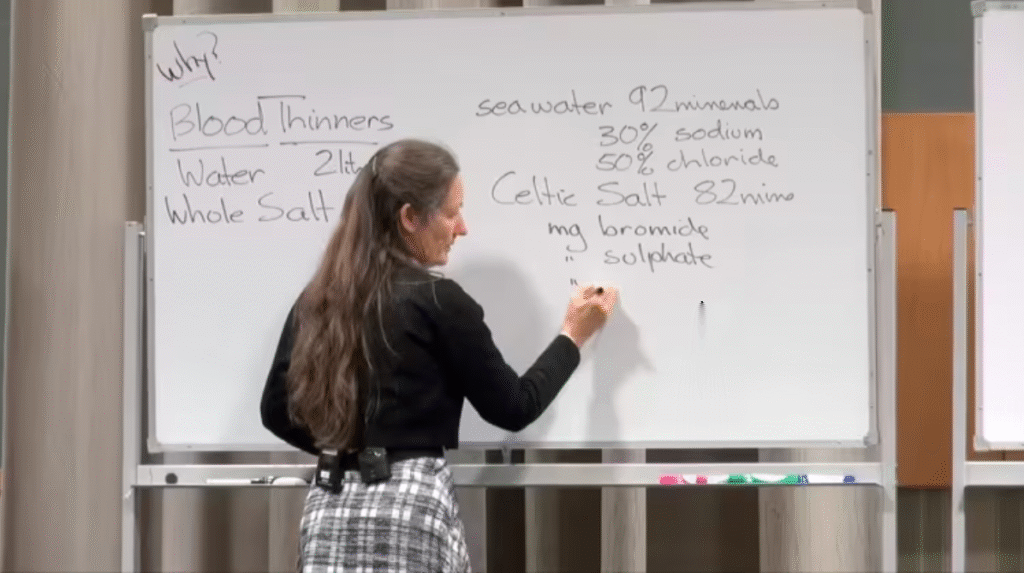 Why?
Blood Thinners
Water 2lit
Whole Salt
seawater 92 minerals
30% sodium
50% chloride
Celtic Salt 82 mins
mg bromide
" sulphate
"